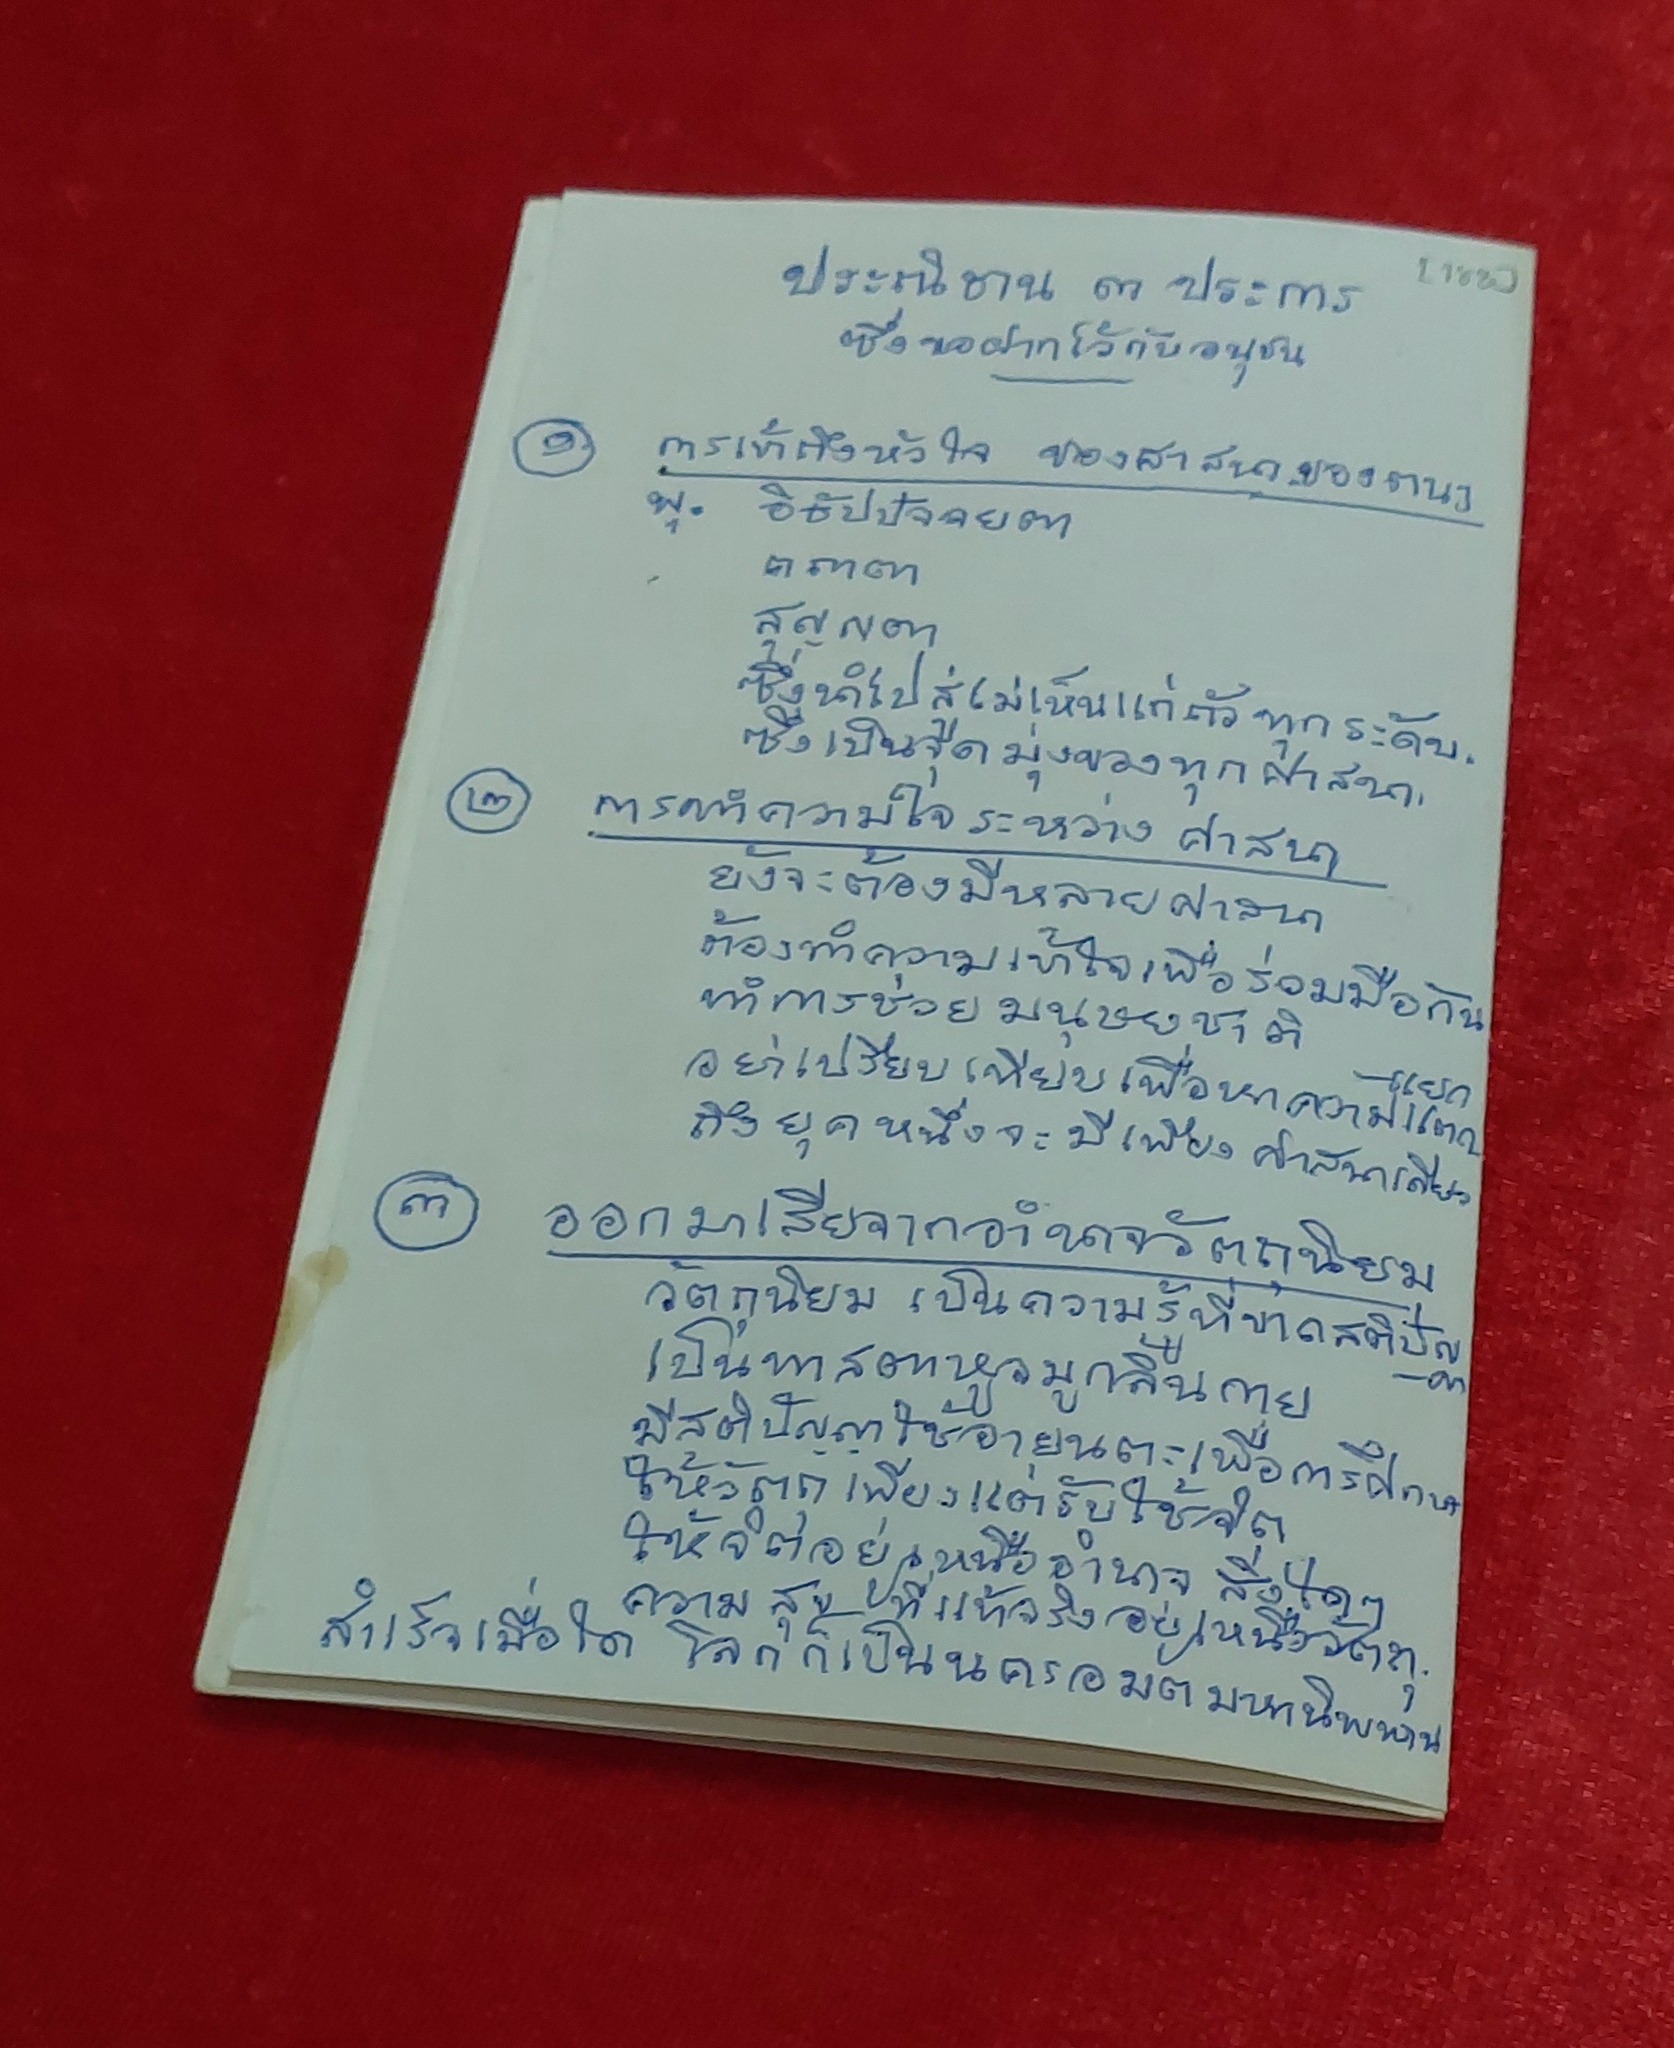 ประณิธาน ๓ ประการ
ซึ่งขอฝากไว้กับอนุชน
๑ การเข้าถึงหัวใจ ของศาสนาของตนๆ
พุ. อิธัปปัจจยตา
ตถาตา
สุญญตา
ซึ่งนำไปสู่ไม่เห็นแก่ตัวทุกระดับ.
ซึ่งเป็นจุดมุ่งของทุกศาสนา.
๒ การทำความเข้าใจระหว่าง ศาสนา
ยังจะต้องมีหลายศาสนา
ต้องทำความเข้าใจเพื่อร่วมมือกัน
ทำการช่วยมนุษยชาติ
อย่าเปรียบเทียบเพื่อหาความแยกแตก
ถึงยุคหนึ่งจะมีเพียงศาสนาเดียว
๓ ออกมาเสียจากอำนาจวัตถุนิยม
วัตถุนิยม เป็นความรู้ที่ขาดสติปัญ
ญา
เป็นทาสตาหูจมูกลิ้นกาย
มีสติปัญญาใช้อายตนะเพื่อการศึกษา
ให้วัตถุเพียงแต่รับใช้จิต
ให้จิตอยู่เหนืออำนาจ สิ่งใดๆ
ความสุขที่แท้จริงอยู่เหนือวัตถุ.
สำเร็จเมื่อใด โลกก็เป็นนครอมตมหานิพพาน